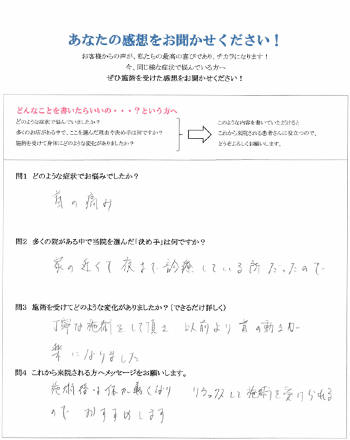 あなたの感想をお聞かせください！
お客様からの声が、私たちの最高の喜びであり、チカラになります！
今、同じ様な症状で悩んでいる方へ
ぜひ施術を受けた感想をお聞かせください！
どんなことを書いたらいいの・・・？という方へ
どのような症状で悩んでいましたか？
多くのお店がある中で、ここを選んだ理由や決め手は何ですか？
施術を受けて身体にどのような変化がありましたか？
このような内容を書いていただけると
これから来院される患者さんに役立つので、
どうぞよろしくお願いします。
問1 どのような症状でお悩みでしたか？
首の痛み
問2 多くの院がある中で当院を選んだ「決め手」は何ですか？
家の近くで夜まで診療している所だったので
問3 施術を受けてどのような変化がありましたか？（できるだけ詳しく）
丁寧な施術をして頂き 以前より首の動きが
楽になりました
問4 これから来院される方へメッセージをお願いします。
施術後は体が軽くなり リラックスして施術を受けられる
のでおすすめします